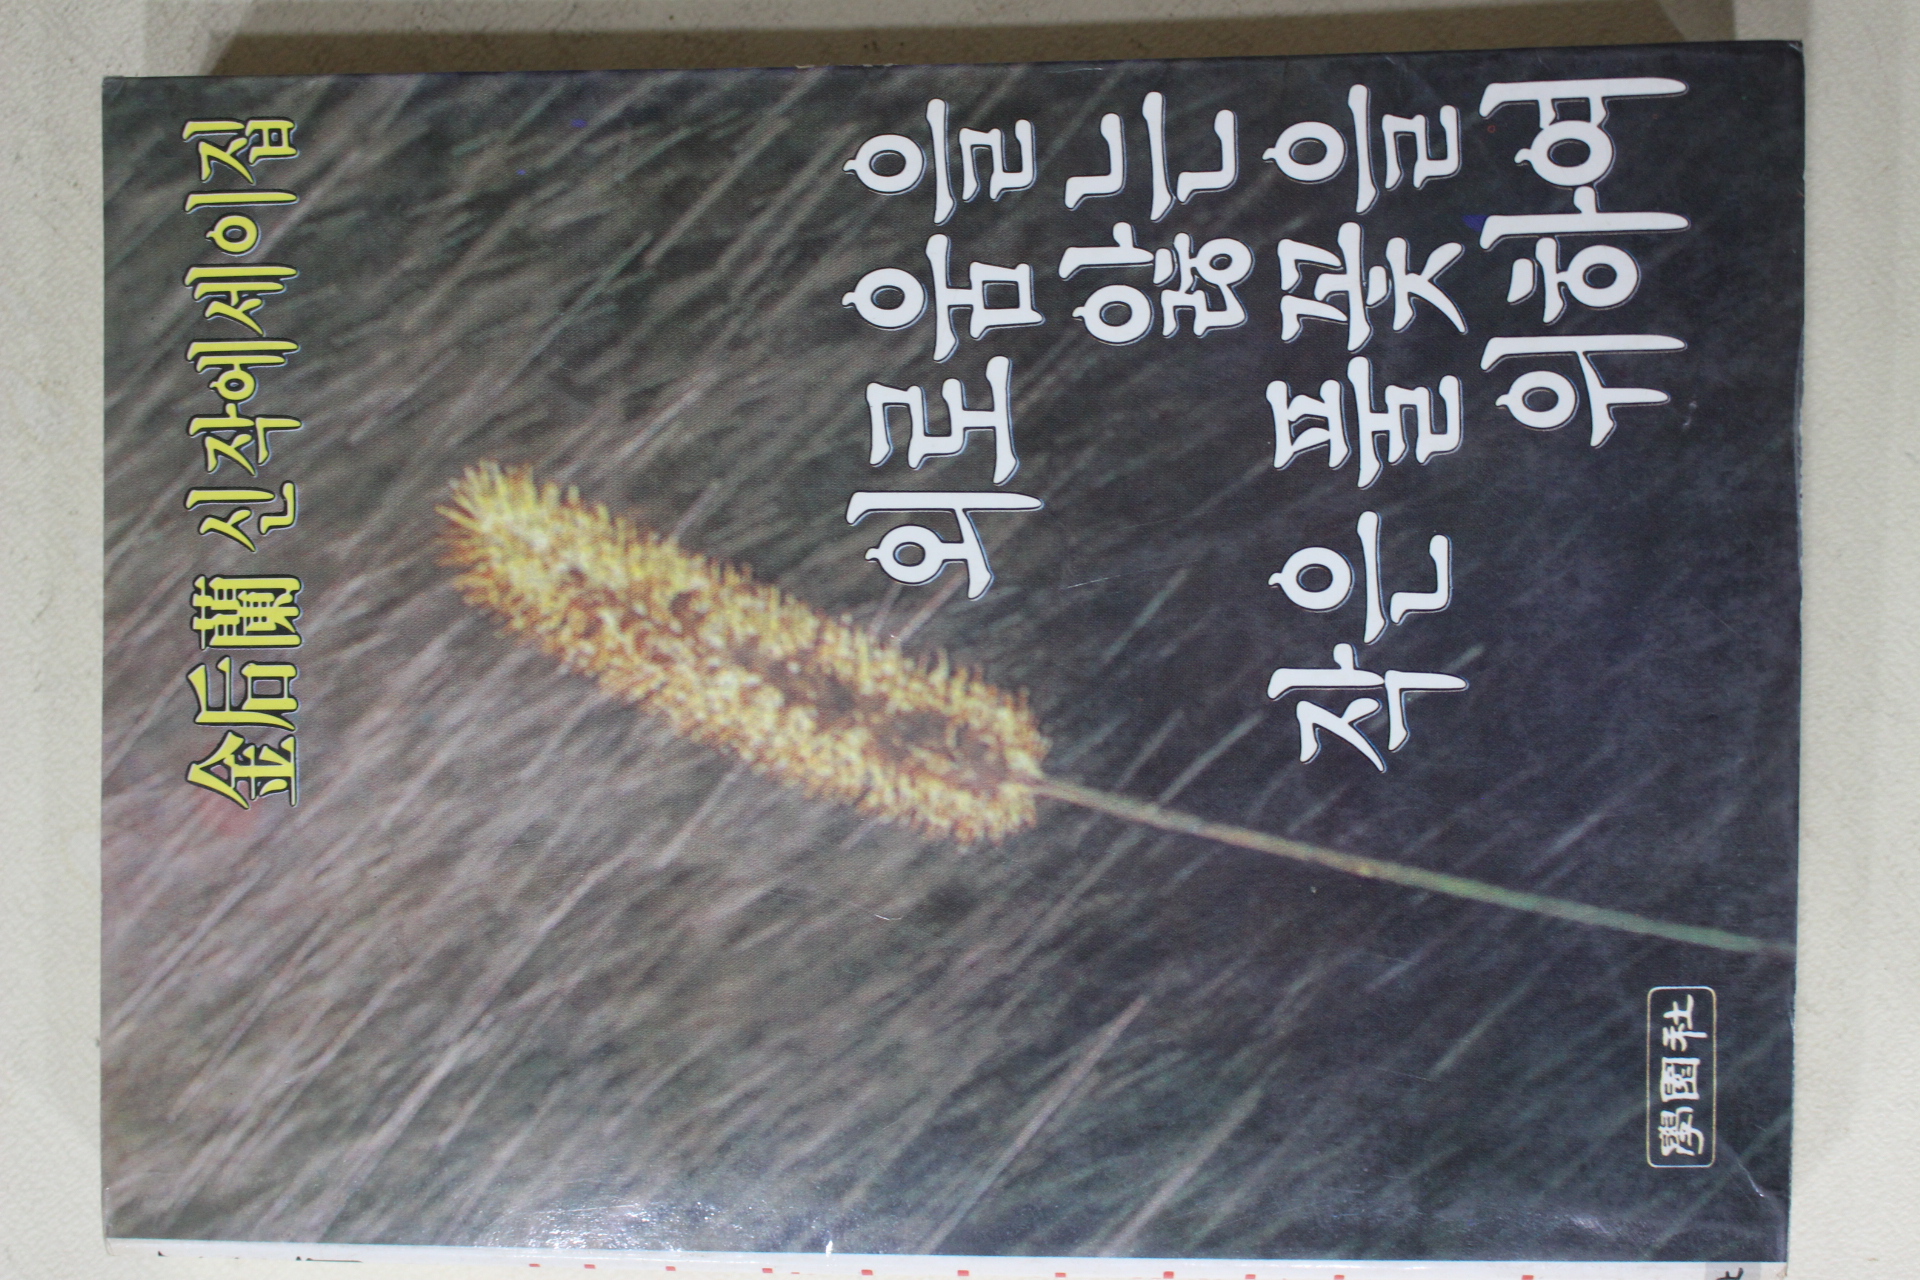 金后蘭 신작에세이집
외로움을
앓는
작은 풀꽃을
위하여
學園社